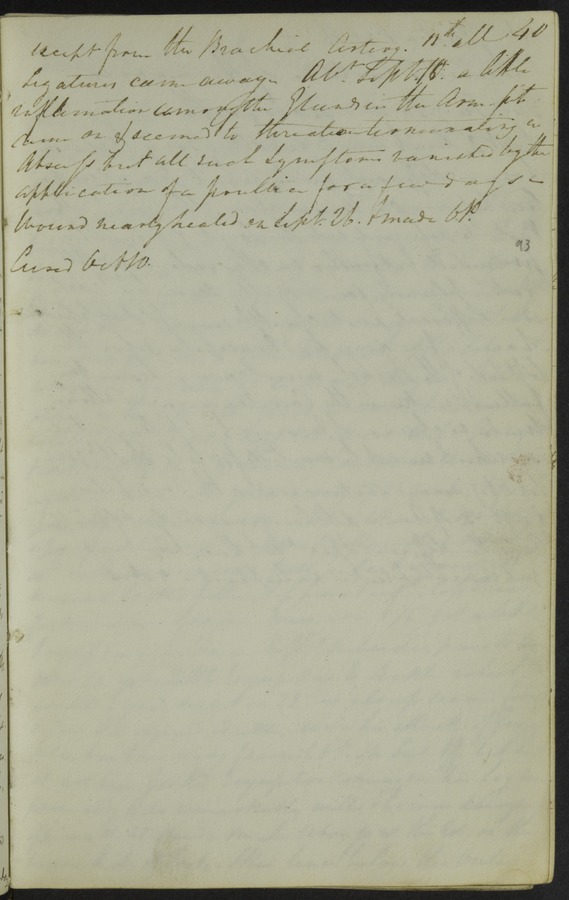 except from the Brachial Artery. 11th all 40
Ligatures came away. Abt. Sept. 18. a little
inflamation among the Glands in the Arm-pit
came on & seemed to threaten terminating in
Abscess but all such Symptoms vanished by the
application of a poultice for a few days -
Wound nearly healed on Sept. 26.
93
Cured Oct 10.